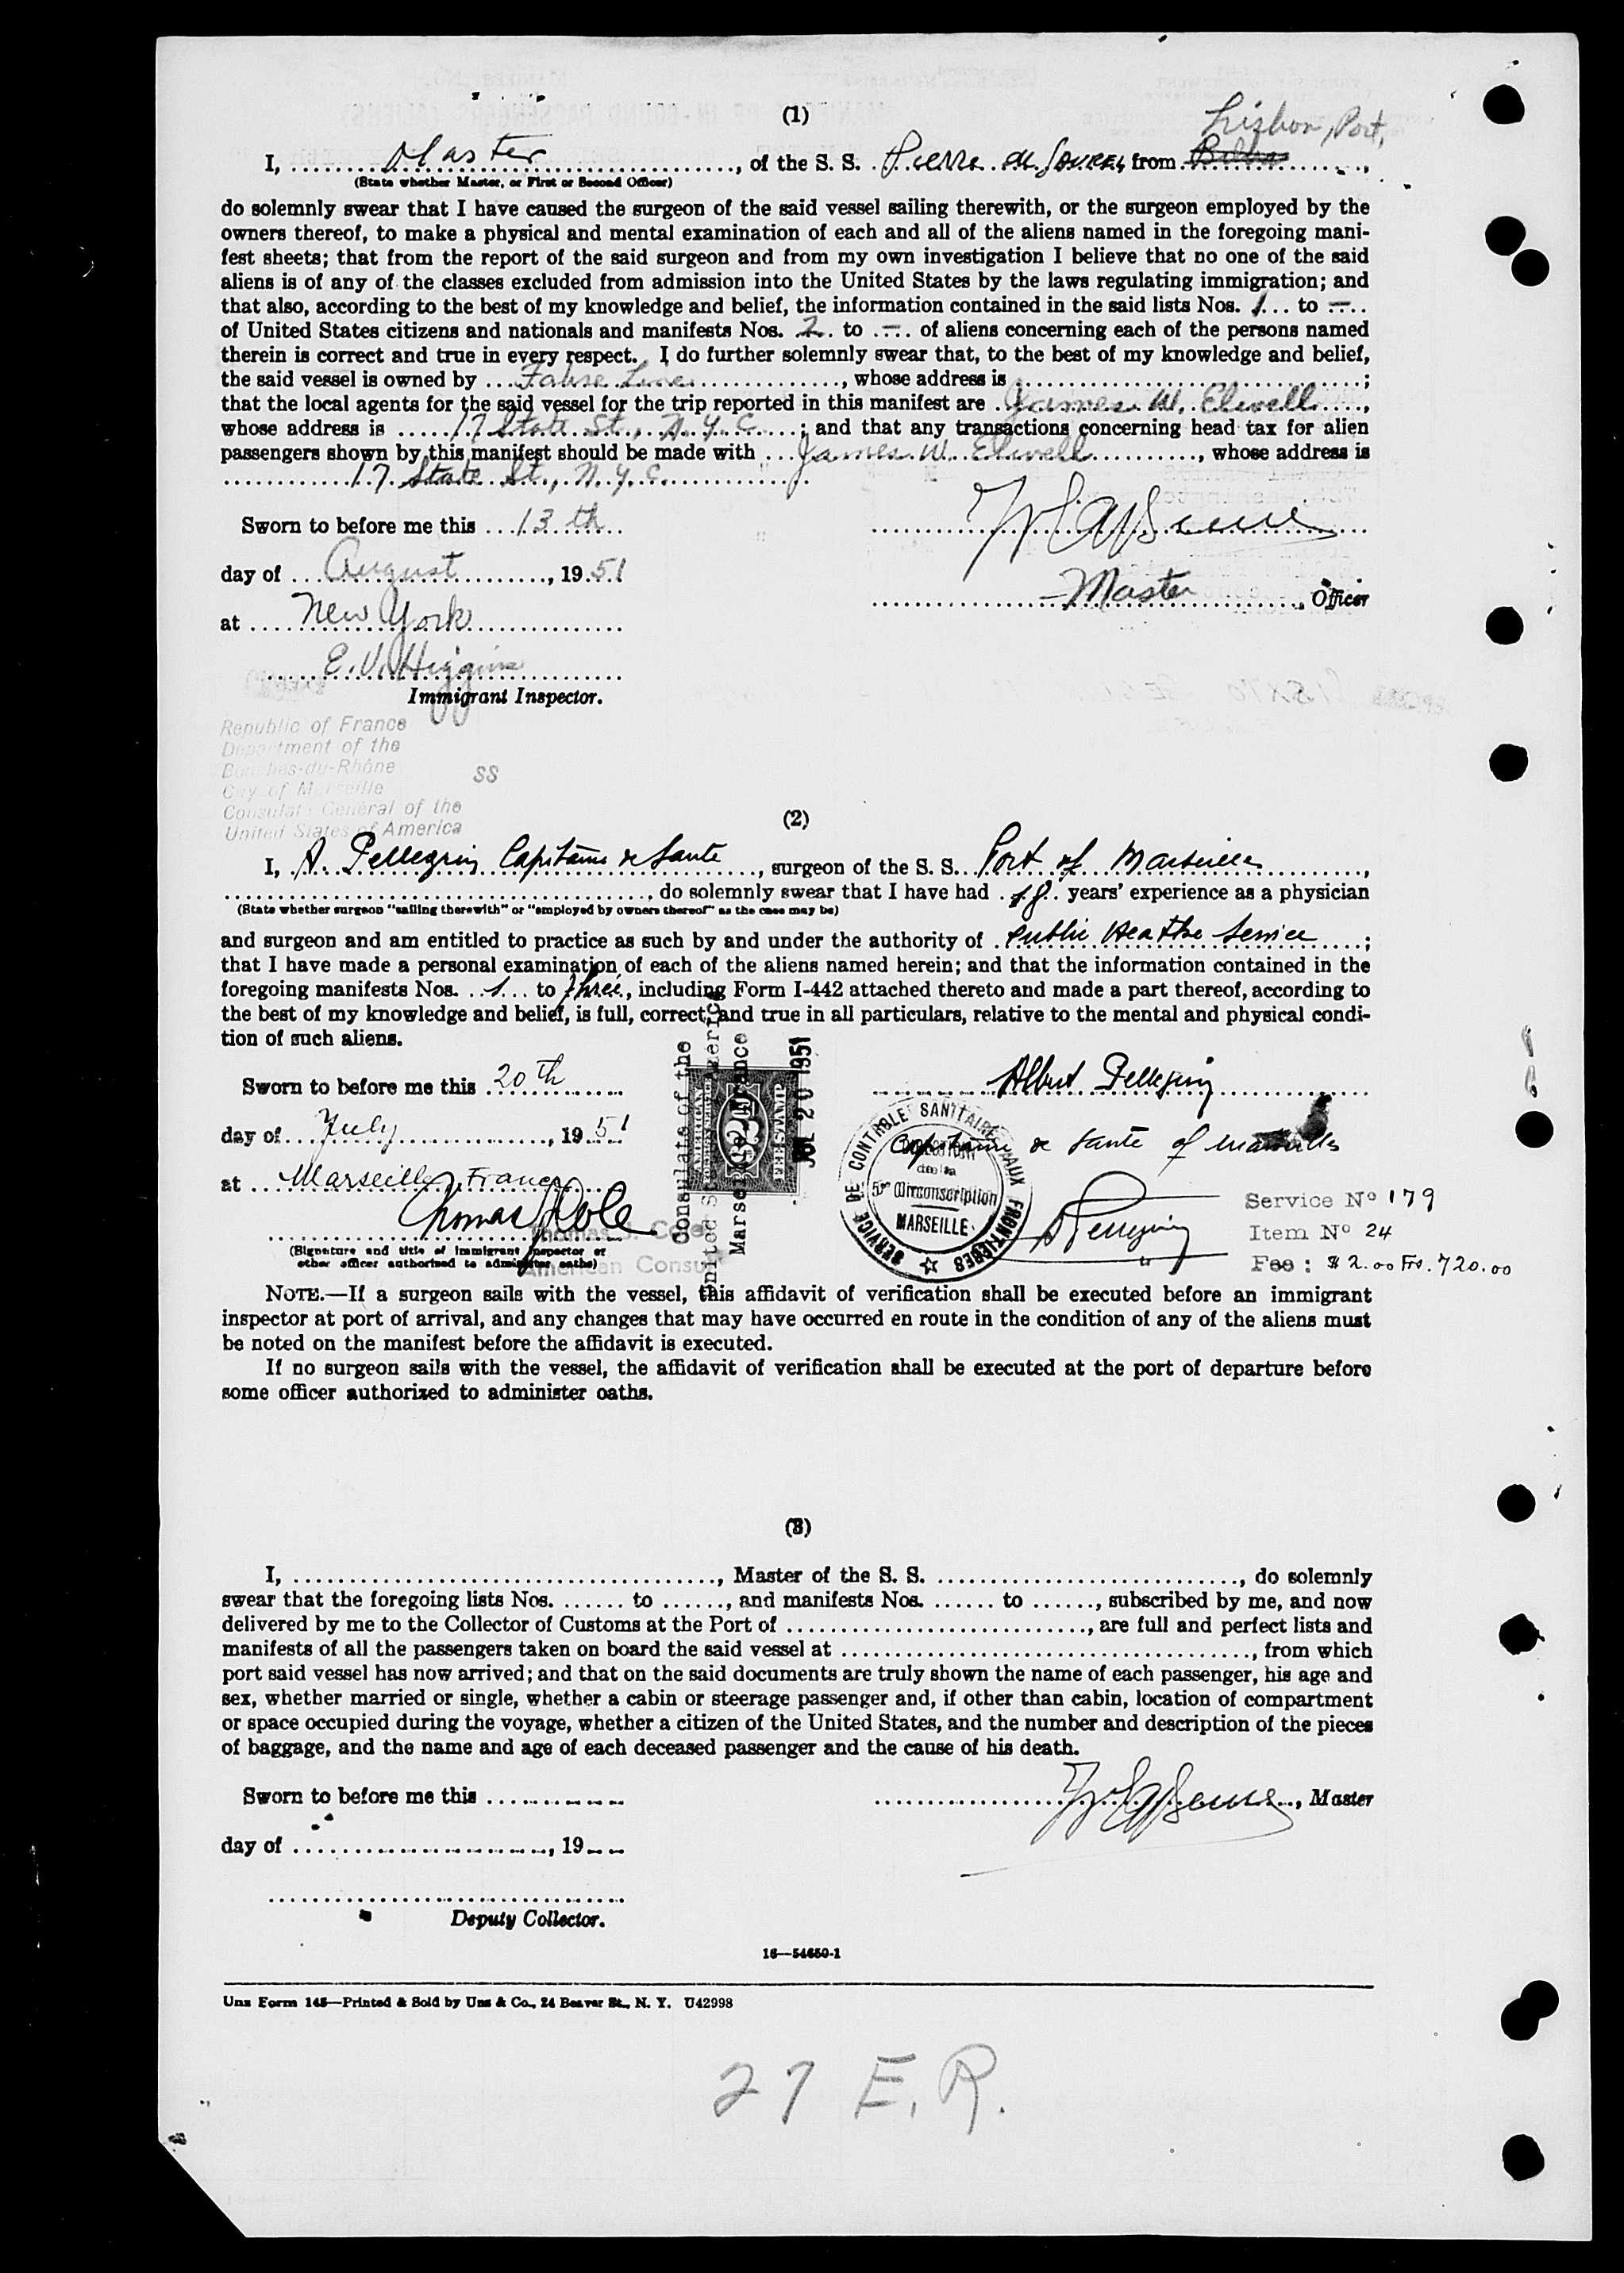 (1)
Lisbon, Port,
I, Master, of the S. S. Pierre de Saurel, from
(State whether Master, or First or Second Officer)
do solemnly swear that I have caused the surgeon of the said vessel sailing therewith, or the surgeon employed by the
owners thereof, to make a physical and mental examination of each and all of the aliens named in the foregoing mani-
fest sheets; that from the report of the said surgeon and from my own investigation I believe that no one of the said
aliens is of any of the classes excluded from admission into the United States by the laws regulating immigration; and
that also, according to the best of my knowledge and belief, the information contained in the said lists Nos. 1 to —
of United States citizens and nationals and manifests Nos. 2 to — of aliens concerning each of the persons named
therein is correct and true in every respect. I do further solemnly swear that, to the best of my knowledge and belief,
the said vessel is owned by Fabre Line, whose address is ;
that the local agents for the said vessel for the trip reported in this manifest are James W. Elwell,
whose address is 17 State St., N.Y.C.; and that any transactions concerning head tax for alien
passengers shown by this manifest should be made with James W. Elwell, whose address is
17 State St., N.Y.C.
Sworn to before me this 13th
day of August, 1951
Master, Officer
at New York
E. V. Higgins
Immigrant Inspector.
Republic of France
Department of the
Bouches-du-Rhône SS
City of Marseille
Consulate General of the
United States of America
(2)
I, A. Pellegrin Capitaine de Santé, surgeon of the S. S. Port of Marseilles,
, do solemnly swear that I have had 18 years' experience as a physician
(State whether surgeon "sailing therewith" or "employed by owners thereof" as the case may be)
and surgeon and am entitled to practice as such by and under the authority of Public Healthe Service;
that I have made a personal examination of each of the aliens named herein; and that the information contained in the
foregoing manifests Nos. 1 to three, including Form I-442 attached thereto and made a part thereof, according to
the best of my knowledge and belief, is full, correct, and true in all particulars, relative to the mental and physical condi-
tion of such aliens.
Sworn to before me this 20th
Albert Pellegrin
day of July, 1951
Capitaine de Santé of Marseilles
at Marseille, France
Thomas J. Cole
Thomas J. Cole
American Consul
(Signature and title of immigrant inspector or
other officer authorized to administer oaths)
Consulate of the
United States America
Marseille, France
AMERICAN
CONSULAR SERVICE
$2
FEE STAMP
JUL 20 1951
SERVICE DE CONTROLE SANITAIRE AUX FRONTIERES
DIRECTION
de la
5me Circonscription
MARSEILLE
A Pellegrin
Service Nº 179
Item Nº 24
Fee : $ 2.00 Frs. 720.00
NOTE.—If a surgeon sails with the vessel, this affidavit of verification shall be executed before an immigrant
inspector at port of arrival, and any changes that may have occurred en route in the condition of any of the aliens must
be noted on the manifest before the affidavit is executed.
If no surgeon sails with the vessel, the affidavit of verification shall be executed at the port of departure before
some officer authorized to administer oaths.
(3)
I, , Master of the S. S. , do solemnly
swear that the foregoing lists Nos. to , and manifests Nos. to , subscribed by me, and now
delivered by me to the Collector of Customs at the Port of , are full and perfect lists and
manifests of all the passengers taken on board the said vessel at , from which
port said vessel has now arrived; and that on the said documents are truly shown the name of each passenger, his age and
sex, whether married or single, whether a cabin or steerage passenger and, if other than cabin, location of compartment
or space occupied during the voyage, whether a citizen of the United States, and the number and description of the pieces
of baggage, and the name and age of each deceased passenger and the cause of his death.
Sworn to before me this
, Master
day of , 19
Deputy Collector.
16—54650-1
Uns Form 145—Printed & Sold by Uns & Co., 24 Beaver St., N. Y. U42998
27 E.R.